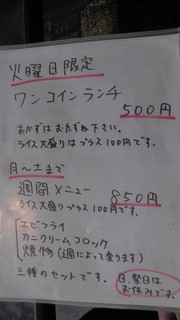 火曜日限定
ワンコインランチ
500円
おかずはおたずね下さい。
ライス大盛りはプラス100円です。
月〜土まで
週間メニュー 850円
ライス大盛りプラス100円です。
エビフライ
カニクリームコロッケ
焼物(週によって変ります)
三種のセットです。
日、祭日は
お休みです。